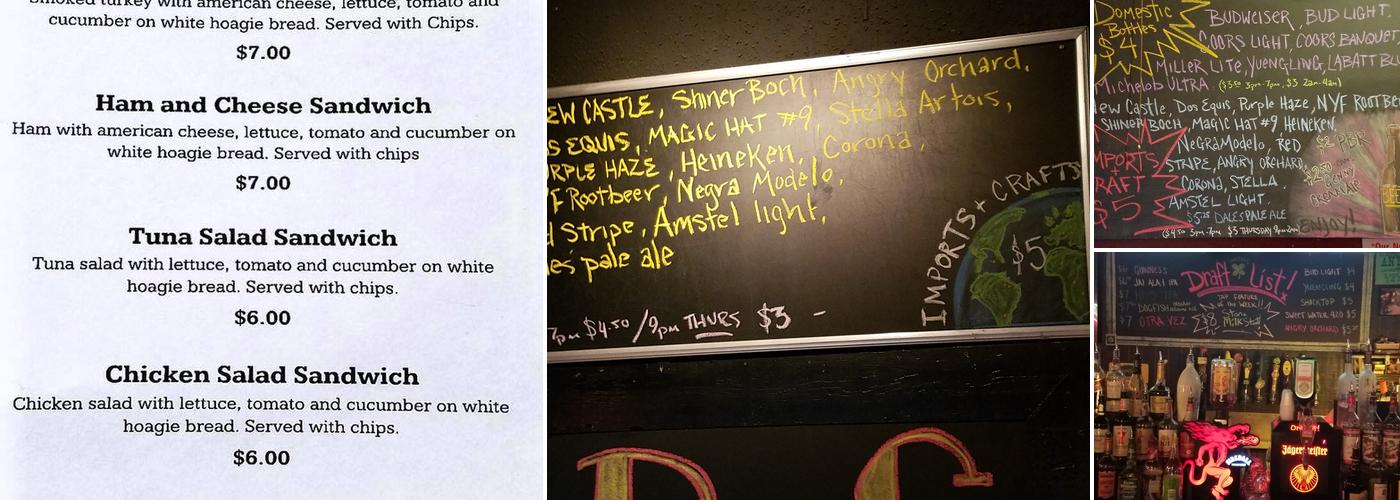 Smoked turkey with american cheese, lettuce, tomato and
cucumber on white hoagie bread. Served with Chips.
$7.00
Ham and Cheese Sandwich
Ham with american cheese, lettuce, tomato and cucumber on
white hoagie bread. Served with chips
$7.00
Tuna Salad Sandwich
Tuna salad with lettuce, tomato and cucumber on white
hoagie bread. Served with chips.
$6.00
Chicken Salad Sandwich
Chicken salad with lettuce, tomato and cucumber on white
hoagie bread. Served with chips.
$6.00
EW CASTLE, Shiner Boch, Angry Orchard,
S EQUIS, MAGIC HAT #9, Stella Artois,
RPLE HAZE, Heineken, Corona,
F Rootbeer, Negra Modelo,
d Stripe, Amstel light,
es pale ale
IMPORTS + CRAFTS
$5
7pm $4.50 / 9pm THURS $3 -
Domestic
Bottles
$4
BUDWEISER, BUD LIGHT
COORS LIGHT, COORS BANQUET
MILLER LITE, YUENGLING, LABATT BLU
Michelob ULTRA ($3.50 3pm-7pm, $3 2am-4am)
ew Castle, Dos Equis, Purple Haze, NYF ROOTBE
SHINER BOCH, Magic Hat #9 HEINEKEN
MPORTS
+
RAFT
$5
NeGRA Modelo, RED
STRIPE, ANGRY ORCHARD,
CORONA, STELLA,
AMSTEL LIGHT.
$5.25 DALES PALE ALE
($4.50 3pm-7pm $3 THURSDAY 9pm-2am)
$2 PBR
ENJOY!
"Our N
Draft List!
$6 GUINNESS
JAI ALAI IPA
$7
DOGFISH
$7 OTRA VEZ
TAP FEATURE
of the WEEK!!
$8 Stone
Milk Stout
BUD LIGHT $4
YUENGLING $4
SHOCKTOP $5
SWEET WATER 420 $5
ANGRY ORCHARD $5.25
FIREBALL
Jägermeister